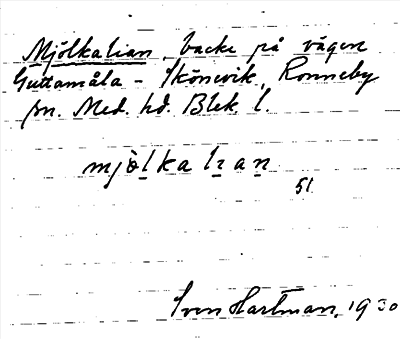 Mjölkalian, backe på vägen
Guttamåla - Skönevik, Ronneby
sn. Med. hd. Blek. l.
mjòlkalıan
51
Sven Hartman, 1930